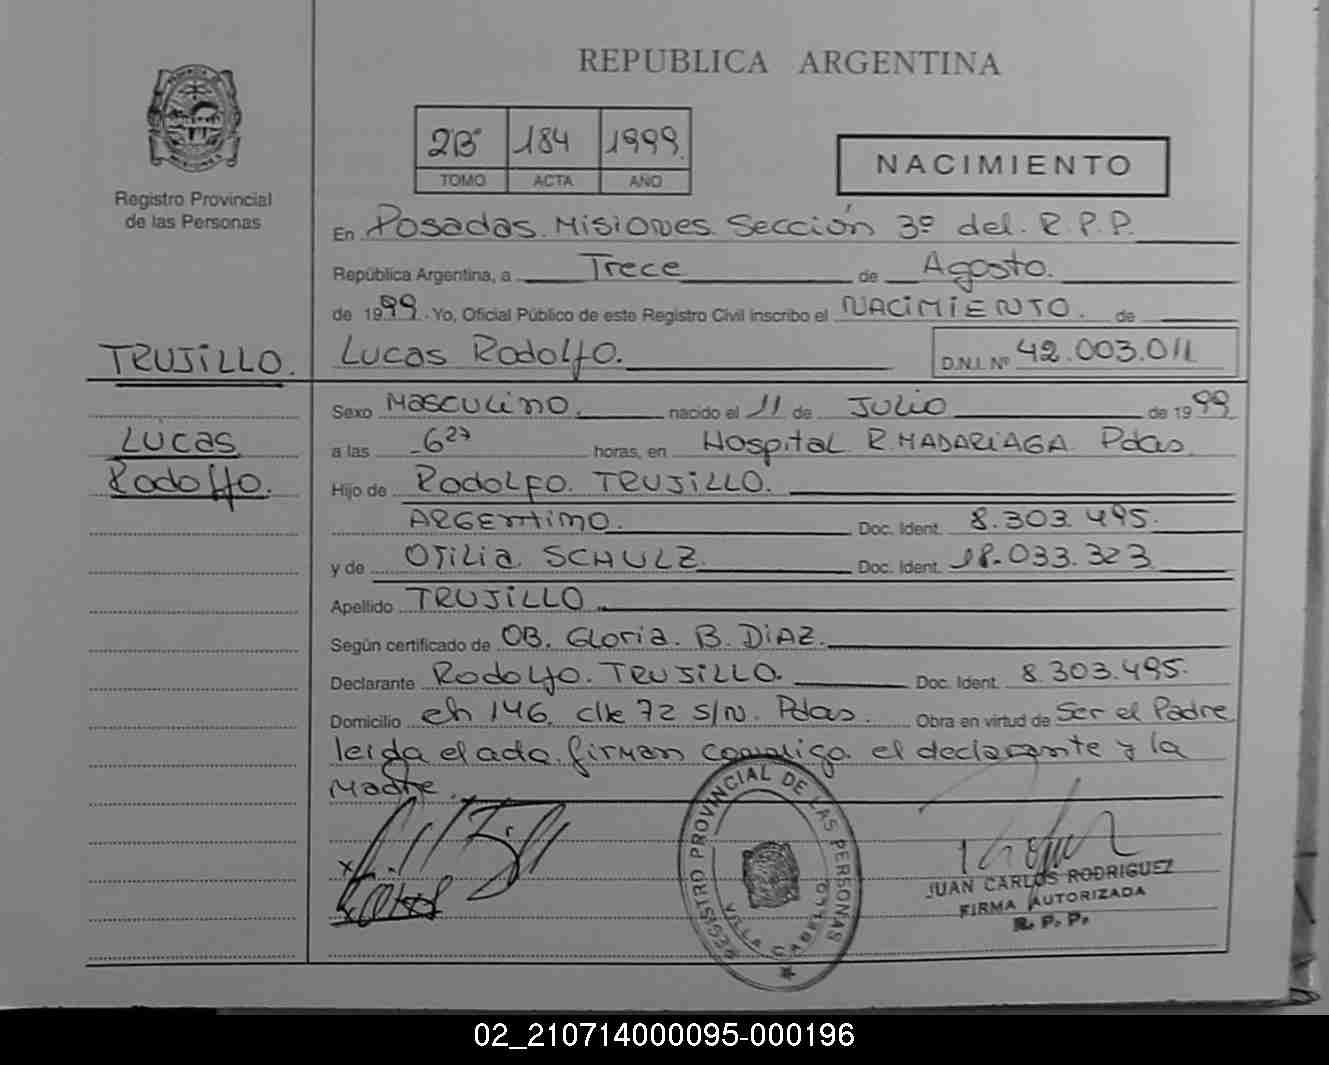 REPUBLICA ARGENTINA
2Bº 184 1999
TOMO ACTA AÑO
NACIMIENTO
Registro Provincial
de las Personas
En Posadas. Misiones. Sección 3º del. R.P.P.
República Argentina, a Trece de Agosto.
de 1999. Yo, Oficial Público de este Registro Civil inscribo el NACIMIENTO. de
TRUJILLO. Lucas Rodolfo. D.N.I. Nº 42.003.011
Sexo Masculino. nacido el 11 de Julio de 1999
Lucas
Rodolfo.
a las 6 27 horas, en Hospital R. MADARIAGA Pdas.
Hijo de Rodolfo. TRUJILLO.
ARGENTINO. Doc. Ident. 8.303.495.
y de OTILIA SCHULZ. Doc. Ident. 18.033.323
Apellido TRUJILLO.
Según certificado de OB. Gloria. B. DIAZ.
Declarante Rodolfo. TRUJILLO. Doc. Ident. 8.303.495.
Domicilio ch 146. clle 72 S/N. Pdas. Obra en virtud de Ser el Padre
leida el acta. firman conmigo. el declarante y la
Madre.
REGISTRO PROVINCIAL DE LAS PERSONAS
VILLA CABELLO
JUAN CARLOS RODRIGUEZ
FIRMA AUTORIZADA
R. P. P.
02_210714000095-000196